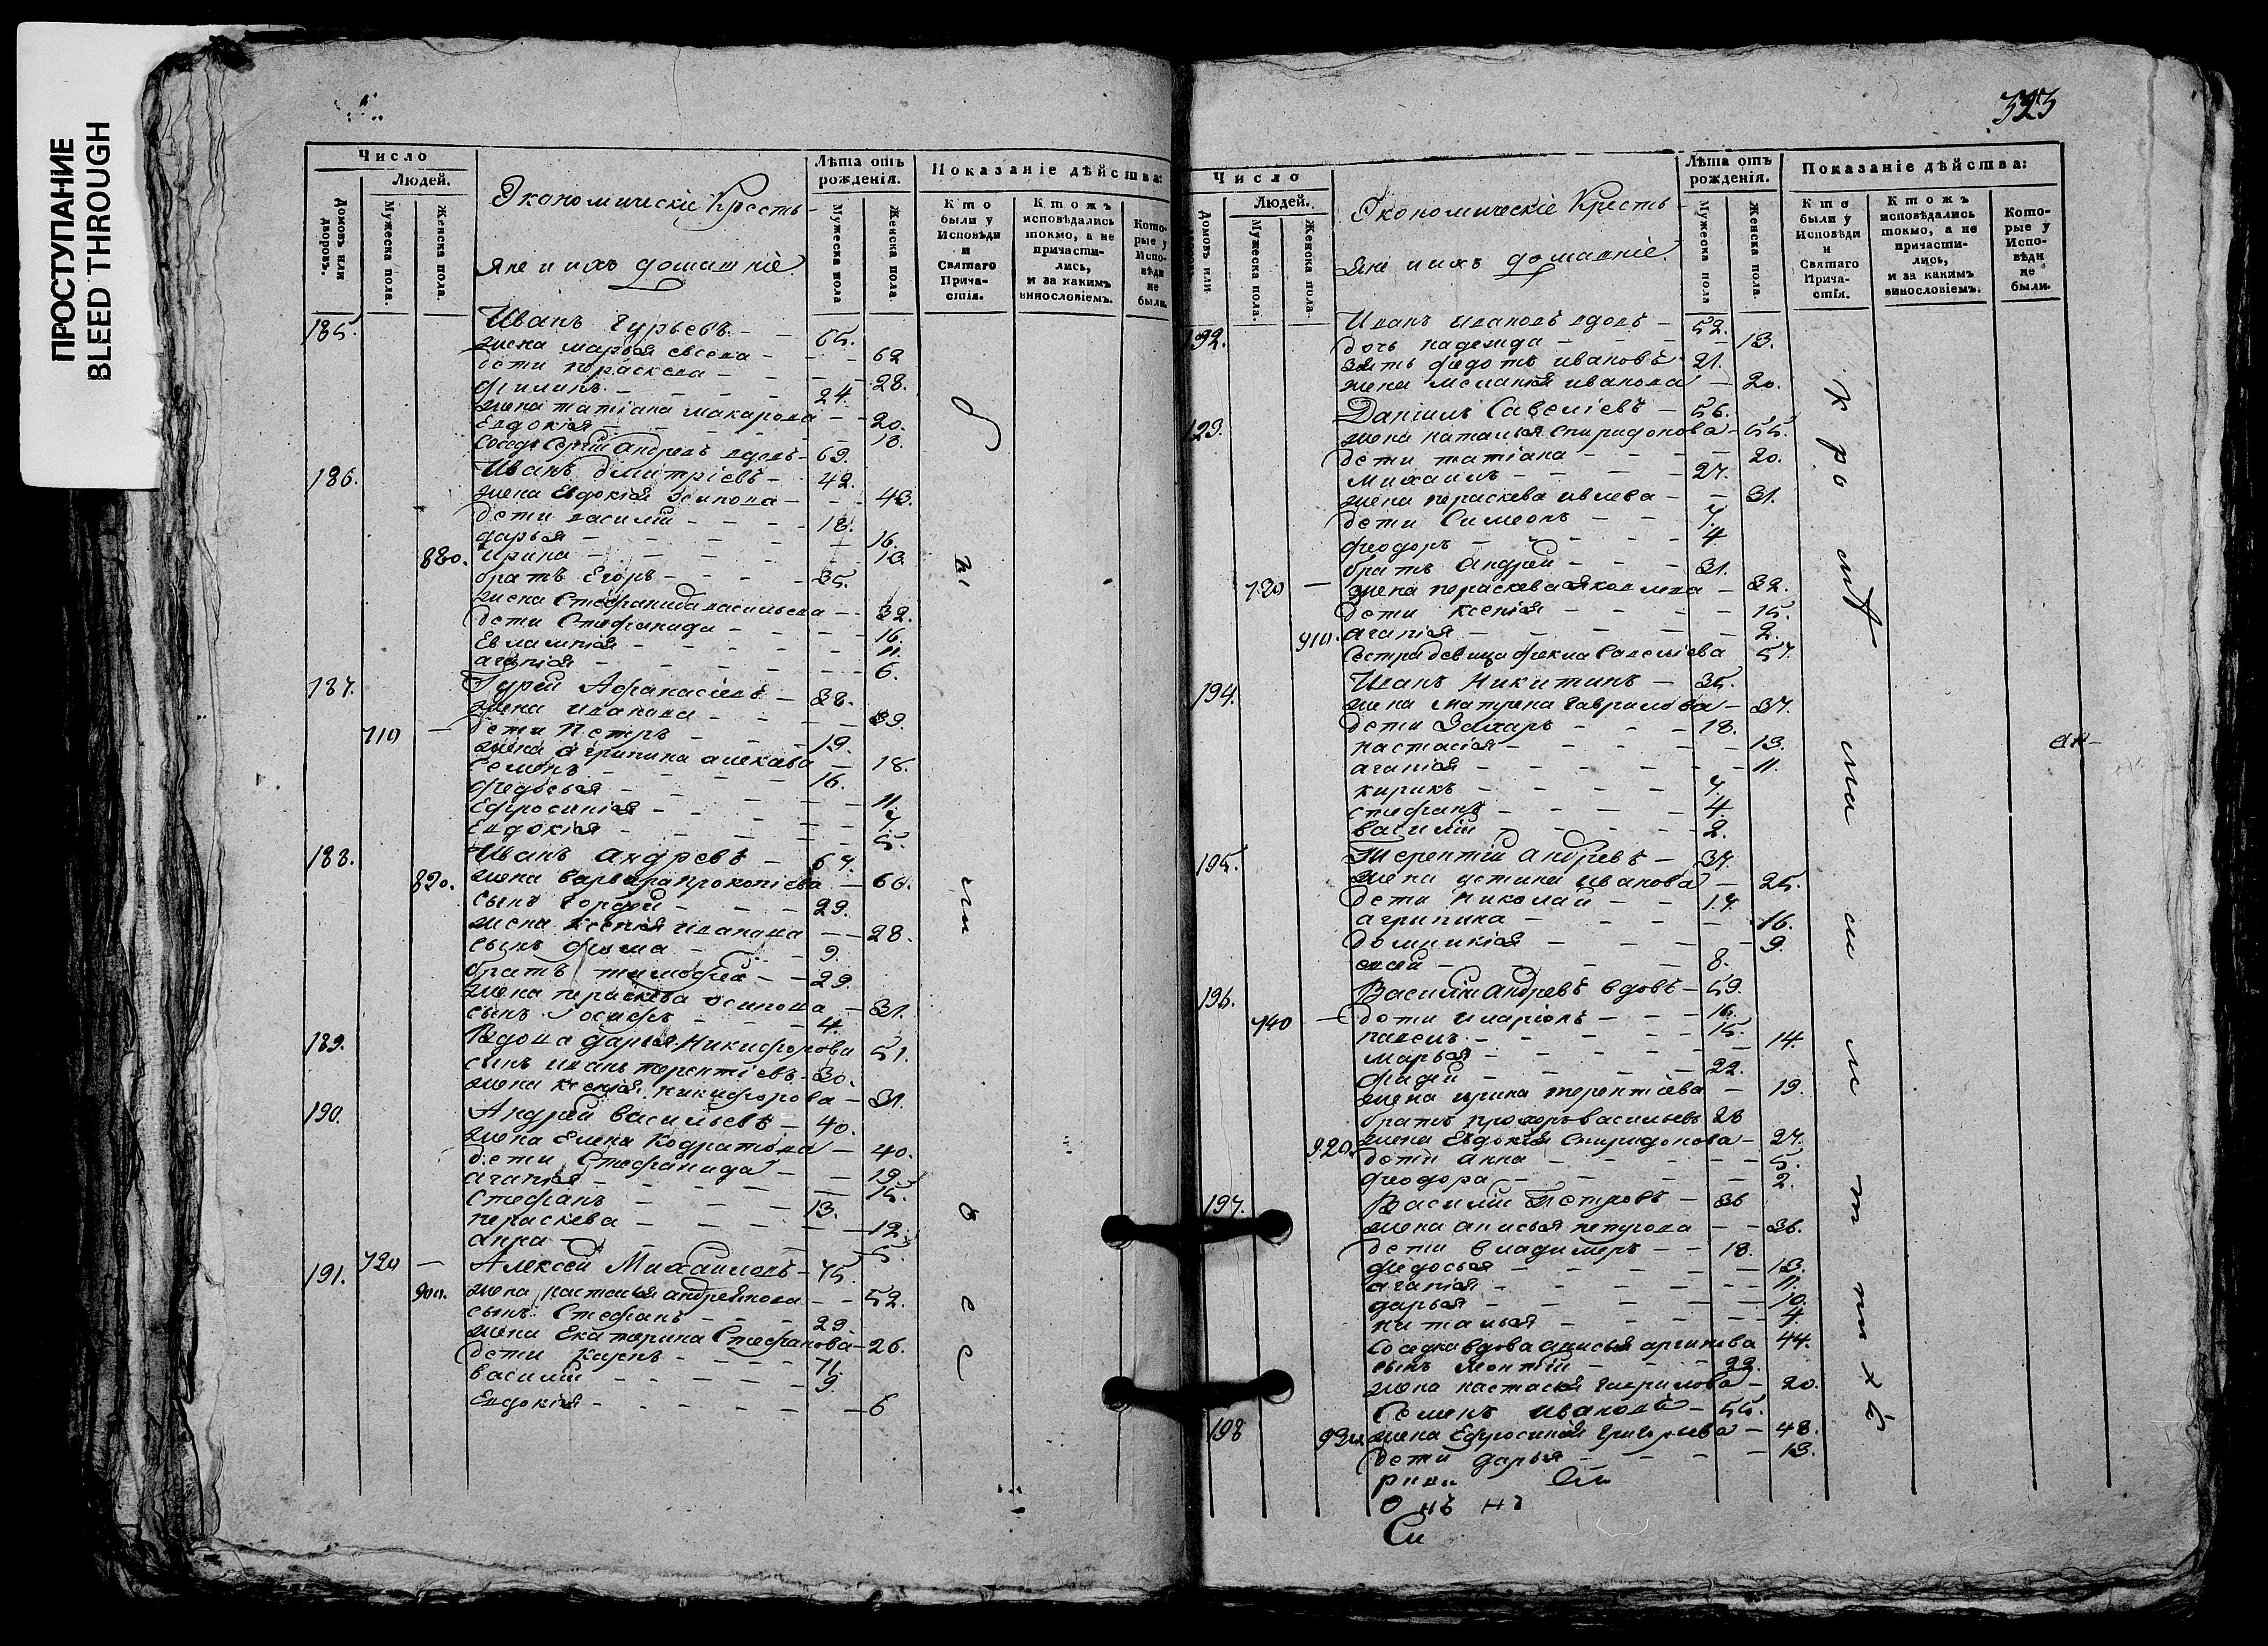 ПРОСТУПАНИЕ
BLEED THROUGH
Число
Людей.
Домовъ или дворовъ.
Мужеска пола.
Женска пола.
Экономическіе Кресть-
яне и ихъ домашніе.
Лѣта отъ рожденія.
Мужеска пола
Женска пола.
Показаніе дѣйства:
Кто были у Исповѣди и Святаго Прича-стія.
Ктожъ исповѣдались токмо, а не причасти-лись, и за какимъ винословіемъ.
Кото-рые у Испо-вѣди не были.
185. Иванъ Гурьевъ - 65.
жена марья евсева - 62
дети параскева - 28.
филипъ - 24.
жена татіана макарова - 20.
Евдокія - 18.
Соседъ Сергій андревъ вдовъ - 69.
186. Иванъ дмитріевъ - 42.
жена Евдокія осипова - 43.
дети василій - 18.
дарья - 16.
880. ирина - 13.
братъ Егоръ - 35.
жена Стефанида васильева - 32.
дети Стефанида - 16.
Евлампія - 11.
агапія - 6.
187. Гурей Афанасіевъ - 38.
жена иванова - 39.
710 - дети Петръ - 19.
жена агрипина алексева - 18.
Семенъ - 16.
федосья - 11.
Ефросинія - 7.
Евдокія - 5.
188. Иванъ андревъ - 67.
890. жена варвара прокопіева - 66.
сынъ гордей - 29.
жена ксенія иванова - 28.
сынъ фома - 9.
братъ тимофей - 29.
жена параскева осипова - 31.
сынъ иосифъ - 4.
189. Вдова дарья Никифорова 51.
сынъ иванъ терентіевъ - 30.
жена ксенія никифорова - 31.
190. Андрей васильевъ - 40.
жена Елена Кодратова - 40.
дети Стефанида - 19.
агапія - 15.
Стефанъ - 13.
параскева - 12.
анна - 5.
191. 720 - Алексей Михаиловъ - 75.
900. жена настасья андреянова - 52.
сынъ Стефанъ - 29
жена Екатерина Стефанова - 26.
дети карпъ - 11.
василій - 9.
Евдокія - 6
323
Число
Людей.
Домовъ или
Мужеска пола.
Женска пола.
Экономическіе Кресть-
яне и ихъ домашніе.
Лѣта отъ рожденія.
Мужеска пола
Женска пола.
Показаніе дѣйства:
Кто были у Исповѣди и Святаго Прича-стія.
Ктожъ исповѣдались токмо, а не причасти-лись, и за какимъ винословіемъ.
Кото-рые у Испо-вѣди не были.
192. Иванъ ивановъ вдовъ - 52.
дочь надежда - 13.
зять федотъ ивановъ - 21.
жена меланія иванова - 20.
193. Даніилъ Савеліевъ - 56.
жена наталья спиридонова - 55.
дети татіана - 20.
михаилъ - 27.
жена параскева ивлева - 31.
дети Симеонъ - 7.
феодоръ - 4
братъ андрей - 31.
730 - жена параскева яковлева - 32.
дети ксенія - 15.
910. агапія - 2.
Сестра девица фекла савеліева 57.
194. Иванъ Никитинъ - 35.
жена матрена гаврилова - 37.
дети Захаръ - 18.
настасія - 13.
агапія - 11.
кирикъ - 7.
стефанъ - 4.
василій - 2.
195. Терентій андревъ - 37.
жена устина иванова - 25.
дети Николай - 17.
агрипина - 16.
домникія - 9.
8.
196. Василій андревъ вдовъ - 59.
740 - дети иларіонъ - 16.
павелъ - 15.
марья - 14.
фадей - 22.
жена ирина терентіева - 19.
братъ прохоръ васильевъ 28
920. жена Евдокія спиридонова - 27.
дети анна - 5.
феодора - 2.
197. Василій Петровъ - 36
жена анисья - 36.
дети владимеръ - 18.
федосья - 13.
агапія - 11.
дарья - 10.
наталья - 4.
Соседка вдова анисья 44.
сынъ леонтій - 22.
жена настасья гаврилова - 20.
198 Семенъ ивановъ - 55.
930. жена Ефросинія григорьева - 48.
дети дарья - 13.